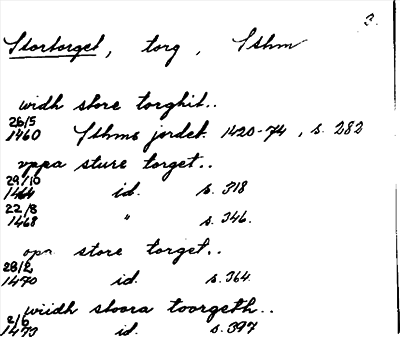 3.
Stortorget, torg, Sthm
widh store torghit..
26/5
1460 Sthms jordeb. 1420-74, s. 282
vppa sture torget..
29/10
1464 id. s. 318
22/8
1468 " s. 346.
opa store torget..
28/2
1470 id. s. 364.
wiidh stoora toorgeth..
2/6
1473 id. s. 397